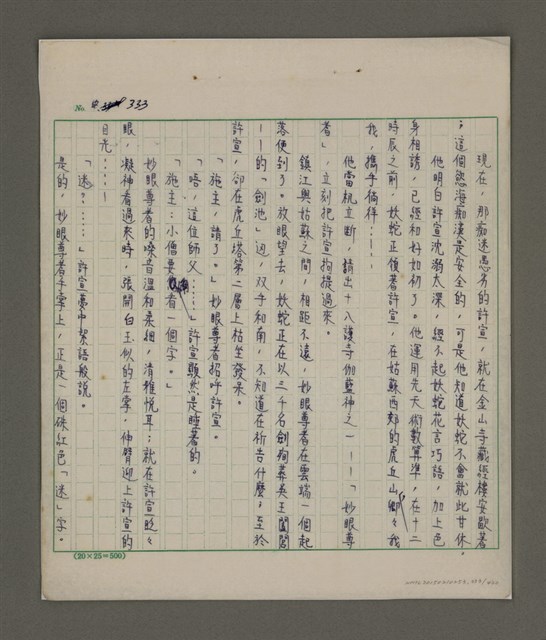 No. 333
現在，那癡迷愚劣的許宣，就在金山寺藏經樓安歇著
；這個慾海痴漢是安全的，可是他知道妖蛇不會就此甘休。
他明白許宣沈溺太深，經不起妖蛇花言巧語，加上色
身相誘，已經和好如初了。他運用先天術數算準，在十二
時辰之前，妖蛇正領著許宣，在姑蘇西郊的虎丘山卿卿我
我，攜手徜徉……
他當机立斷，請出十八護寺伽藍神之一——「妙眼尊
者」，立刻把許宣拘提過來。
鎮江與姑蘇之間，相距不遠，妙眼尊者在雲端一個起
落便到了。放眼望去，妖蛇正在以三千名劍殉葬吳王闔閭
——的「劍池」邊，双手和南，不知道在祈告什麼；至於
許宣，卻在虎丘塔第二層上枯坐發呆。
「施主，請了。」妙眼尊者招呼許宣。
「唔，這位師父……」許宣顯然是睡著的。
「施主：小僧要看一個字。」
妙眼尊者的嗓音溫和柔細，清雅悅耳；就在許宣眨眨
眼，凝神看過來時，張開白玉似的左掌，伸臂迎上許宣的
目光……
「迷？……」許宣夢中絮語般說。
是的，妙眼尊者手掌上，正是一個硃紅色「迷」字。
(20×25=500)